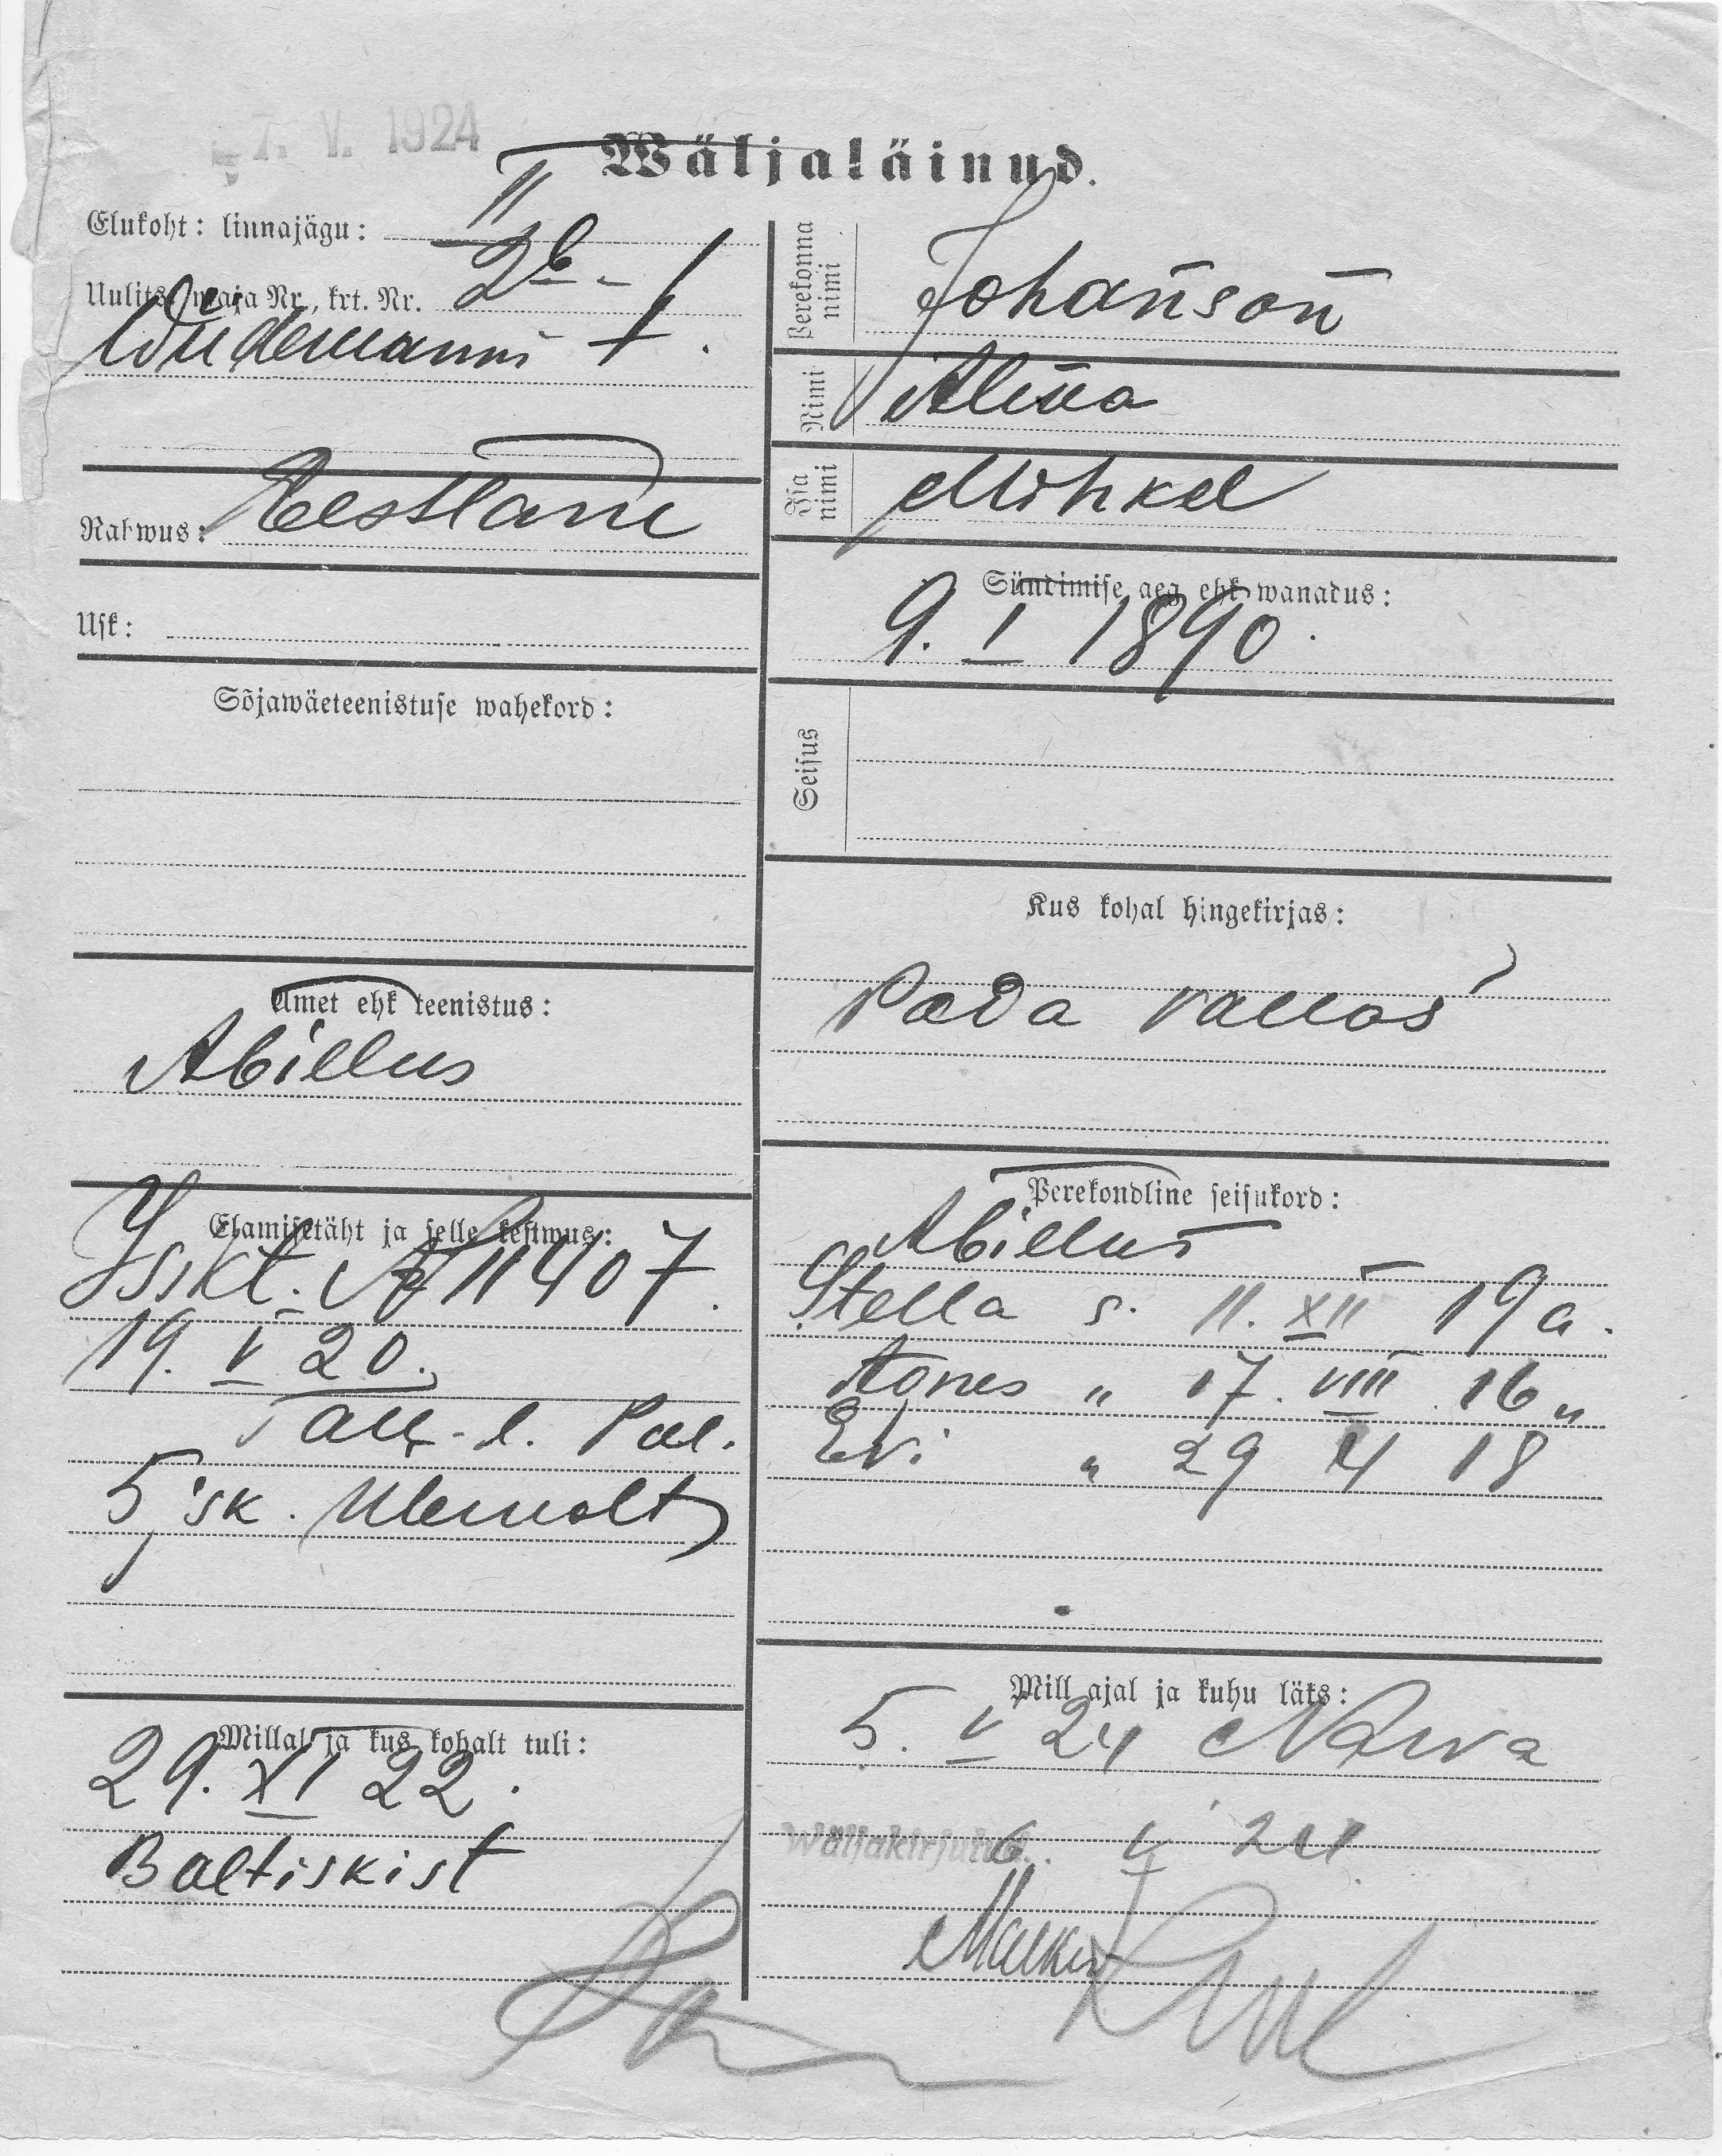 7. V. 1924
Wäljaläinud.
Elukoht: linnajägu: II
Uulits, maja Nr., krt. Nr. 2b - 1
Wiidemanni t.
Rahwus: Eestlane
Usk:
Sõjawäeteenistuse wahekord:
Amet ehk teenistus:
Abielus
Elamisetäht ja selle kestwus:
Isikt. A 11407.
19. V 20.
Tall. l. Pol.
5 jsk.
Millal ja kus kohalt tuli:
29. XI 22.
Baltiskist
Perekonna nimi
Johanson
Nimi
Alma
Isa nimi
Mihkel
Sündimise aeg ehk wanadus:
9. I 1890.
Seisus
Kus kohal hingekirjas:
Pada vallas
Perekondline seisukord:
Abielus
Stella s. 11. XII 19 a.
Agnes " 17. VIII 16 "
Evi " 29 18
Mill ajal ja kuhu läks:
5. V 24 Narva
Wäljakirjutud 6. V 24